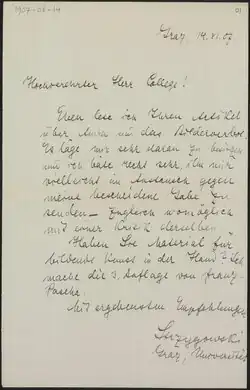 1907-08-14
Graz, 14.VI.07
Hochverehrter Herr College!
Eben lese ich Ihren Artikel
über Amra und das Bilderverbot.
Es läge mir sehr daran zu besitzen
und ich bäte recht sehr ihn mir
vielleicht im Austausch gegen
meine bescheidene Gabe zu
senden – zugleich womöglich
mit einer Kritik derselben
Haben Sie Material für
bildende Kunst in der Hand? Ich
mache die 3. Auflage von Franz-
Pascha.
Mit ergebensten Empfehlungen
Strzygowski
Graz, Universität